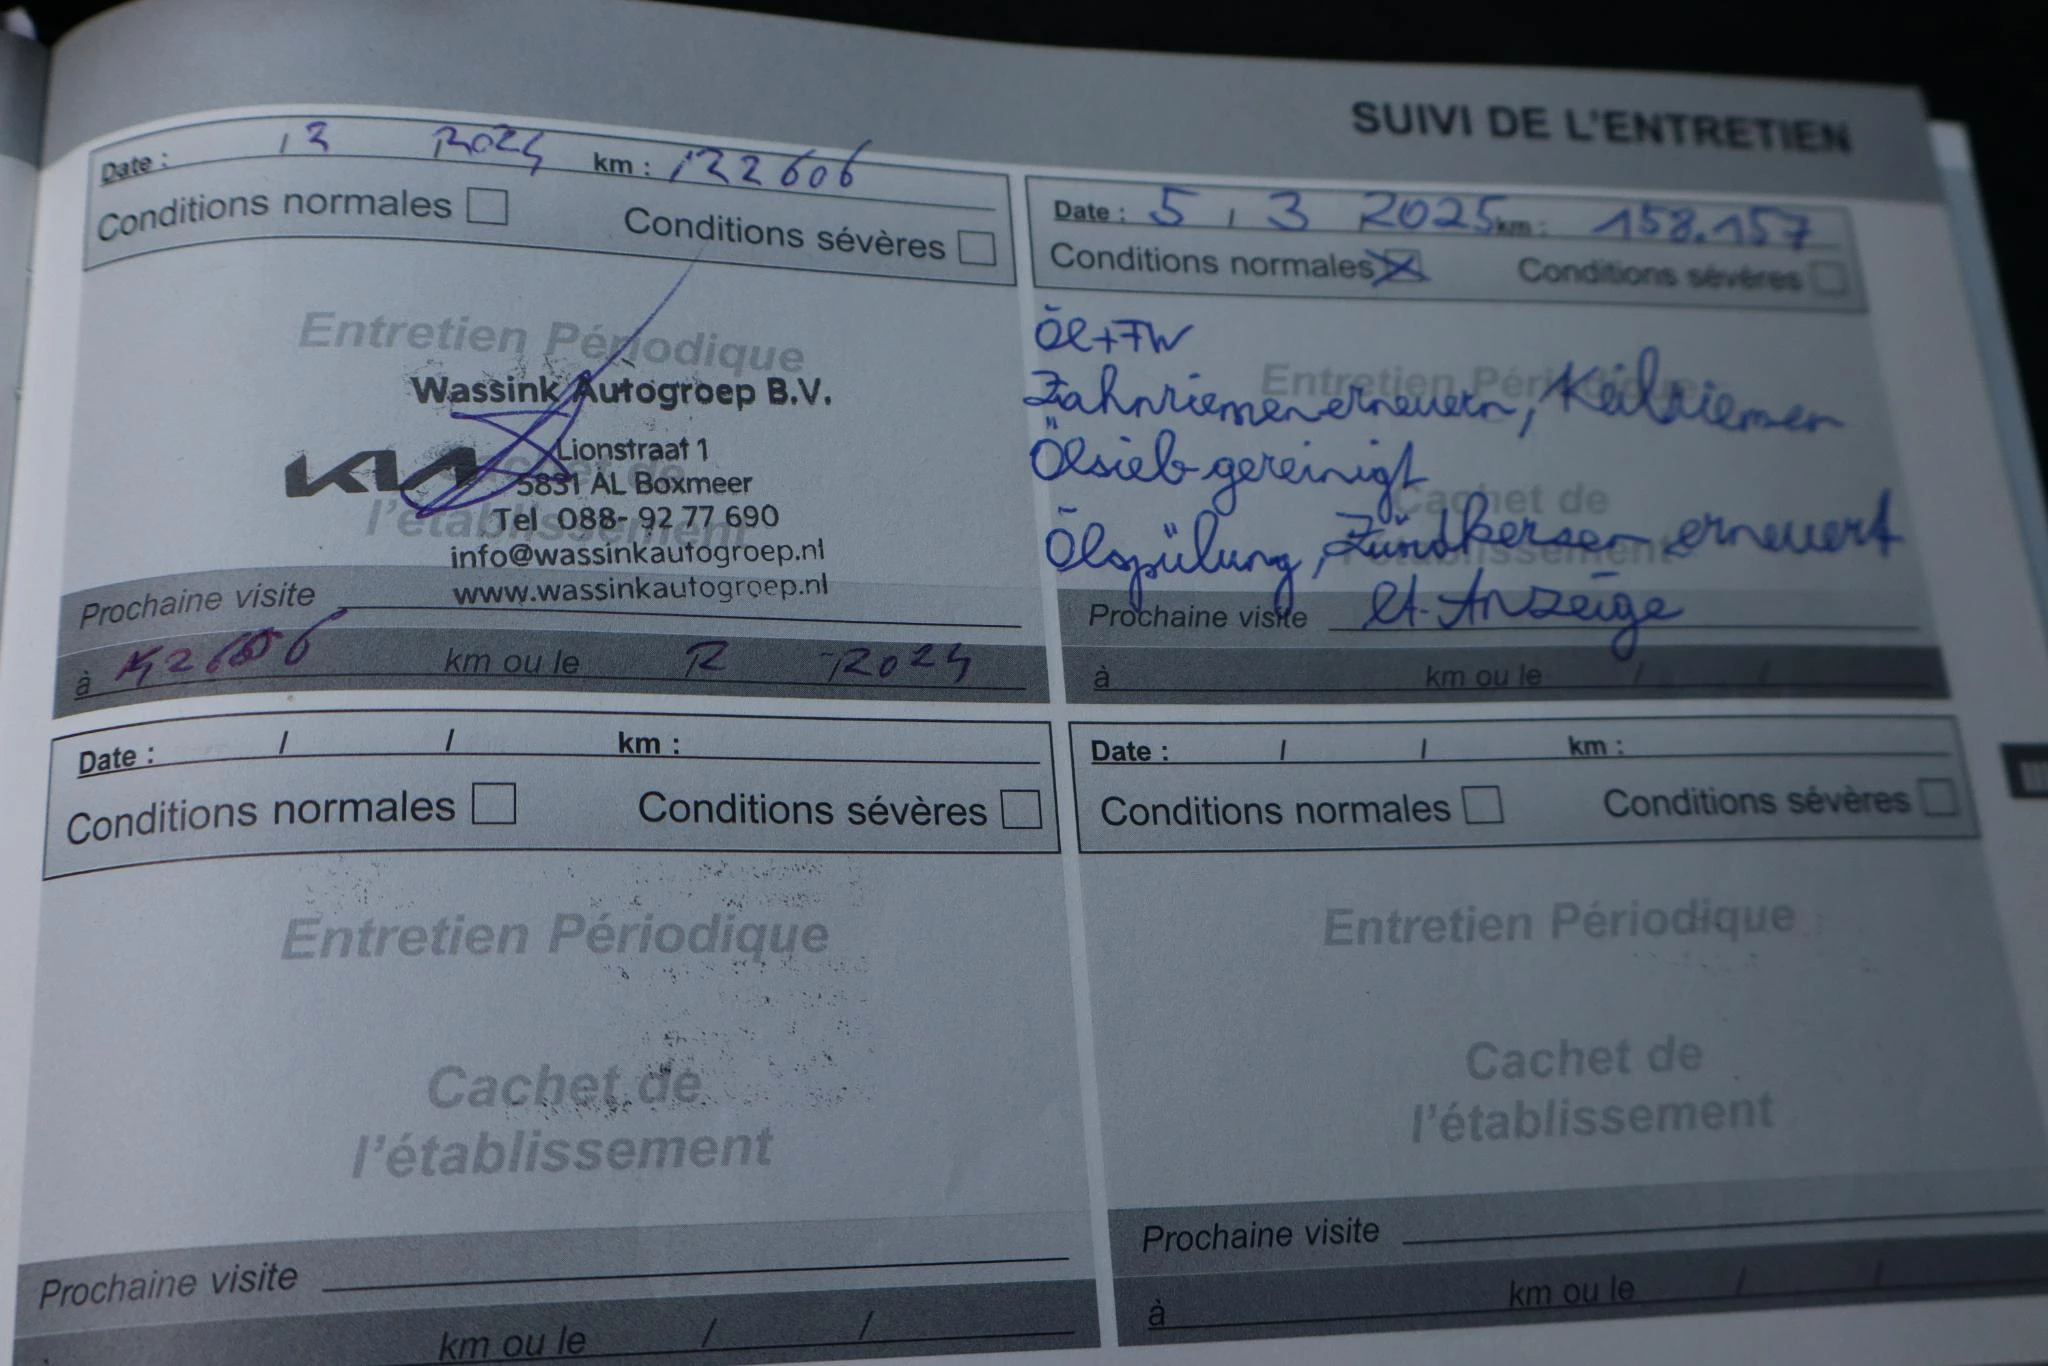 SUIVI DE L'ENTRETIEN
Date : 2024 km : 122606
Conditions normales Conditions sévères
Entretien Périodique
Wassink Autogroep B.V.
Lionstraat 1
KIA Cachet de
5831 AL Boxmeer
l'établissement
Tel 088- 92 77 690
info@wassinkautogroep.nl
www.wassinkautogroep.nl
Prochaine visite
à km ou le 2024
Date : 5 / 3 2025 km : 158.157
Conditions normales Conditions sévères
Öl + FW
Entretien Périodique
Zahnriemen erneuern, Keilriemen
Ölsieb gereinigt
Cachet de
l'établissement
Ölspülung, Zündkerzen erneuert
Prochaine visite lt. Anzeige
à km ou le / /
Date : / / km :
Conditions normales Conditions sévères
Entretien Périodique
Cachet de
l'établissement
Prochaine visite
km ou le / /
Date : / / km :
Conditions normales Conditions sévères
Entretien Périodique
Cachet de
l'établissement
Prochaine visite
à km ou le / /